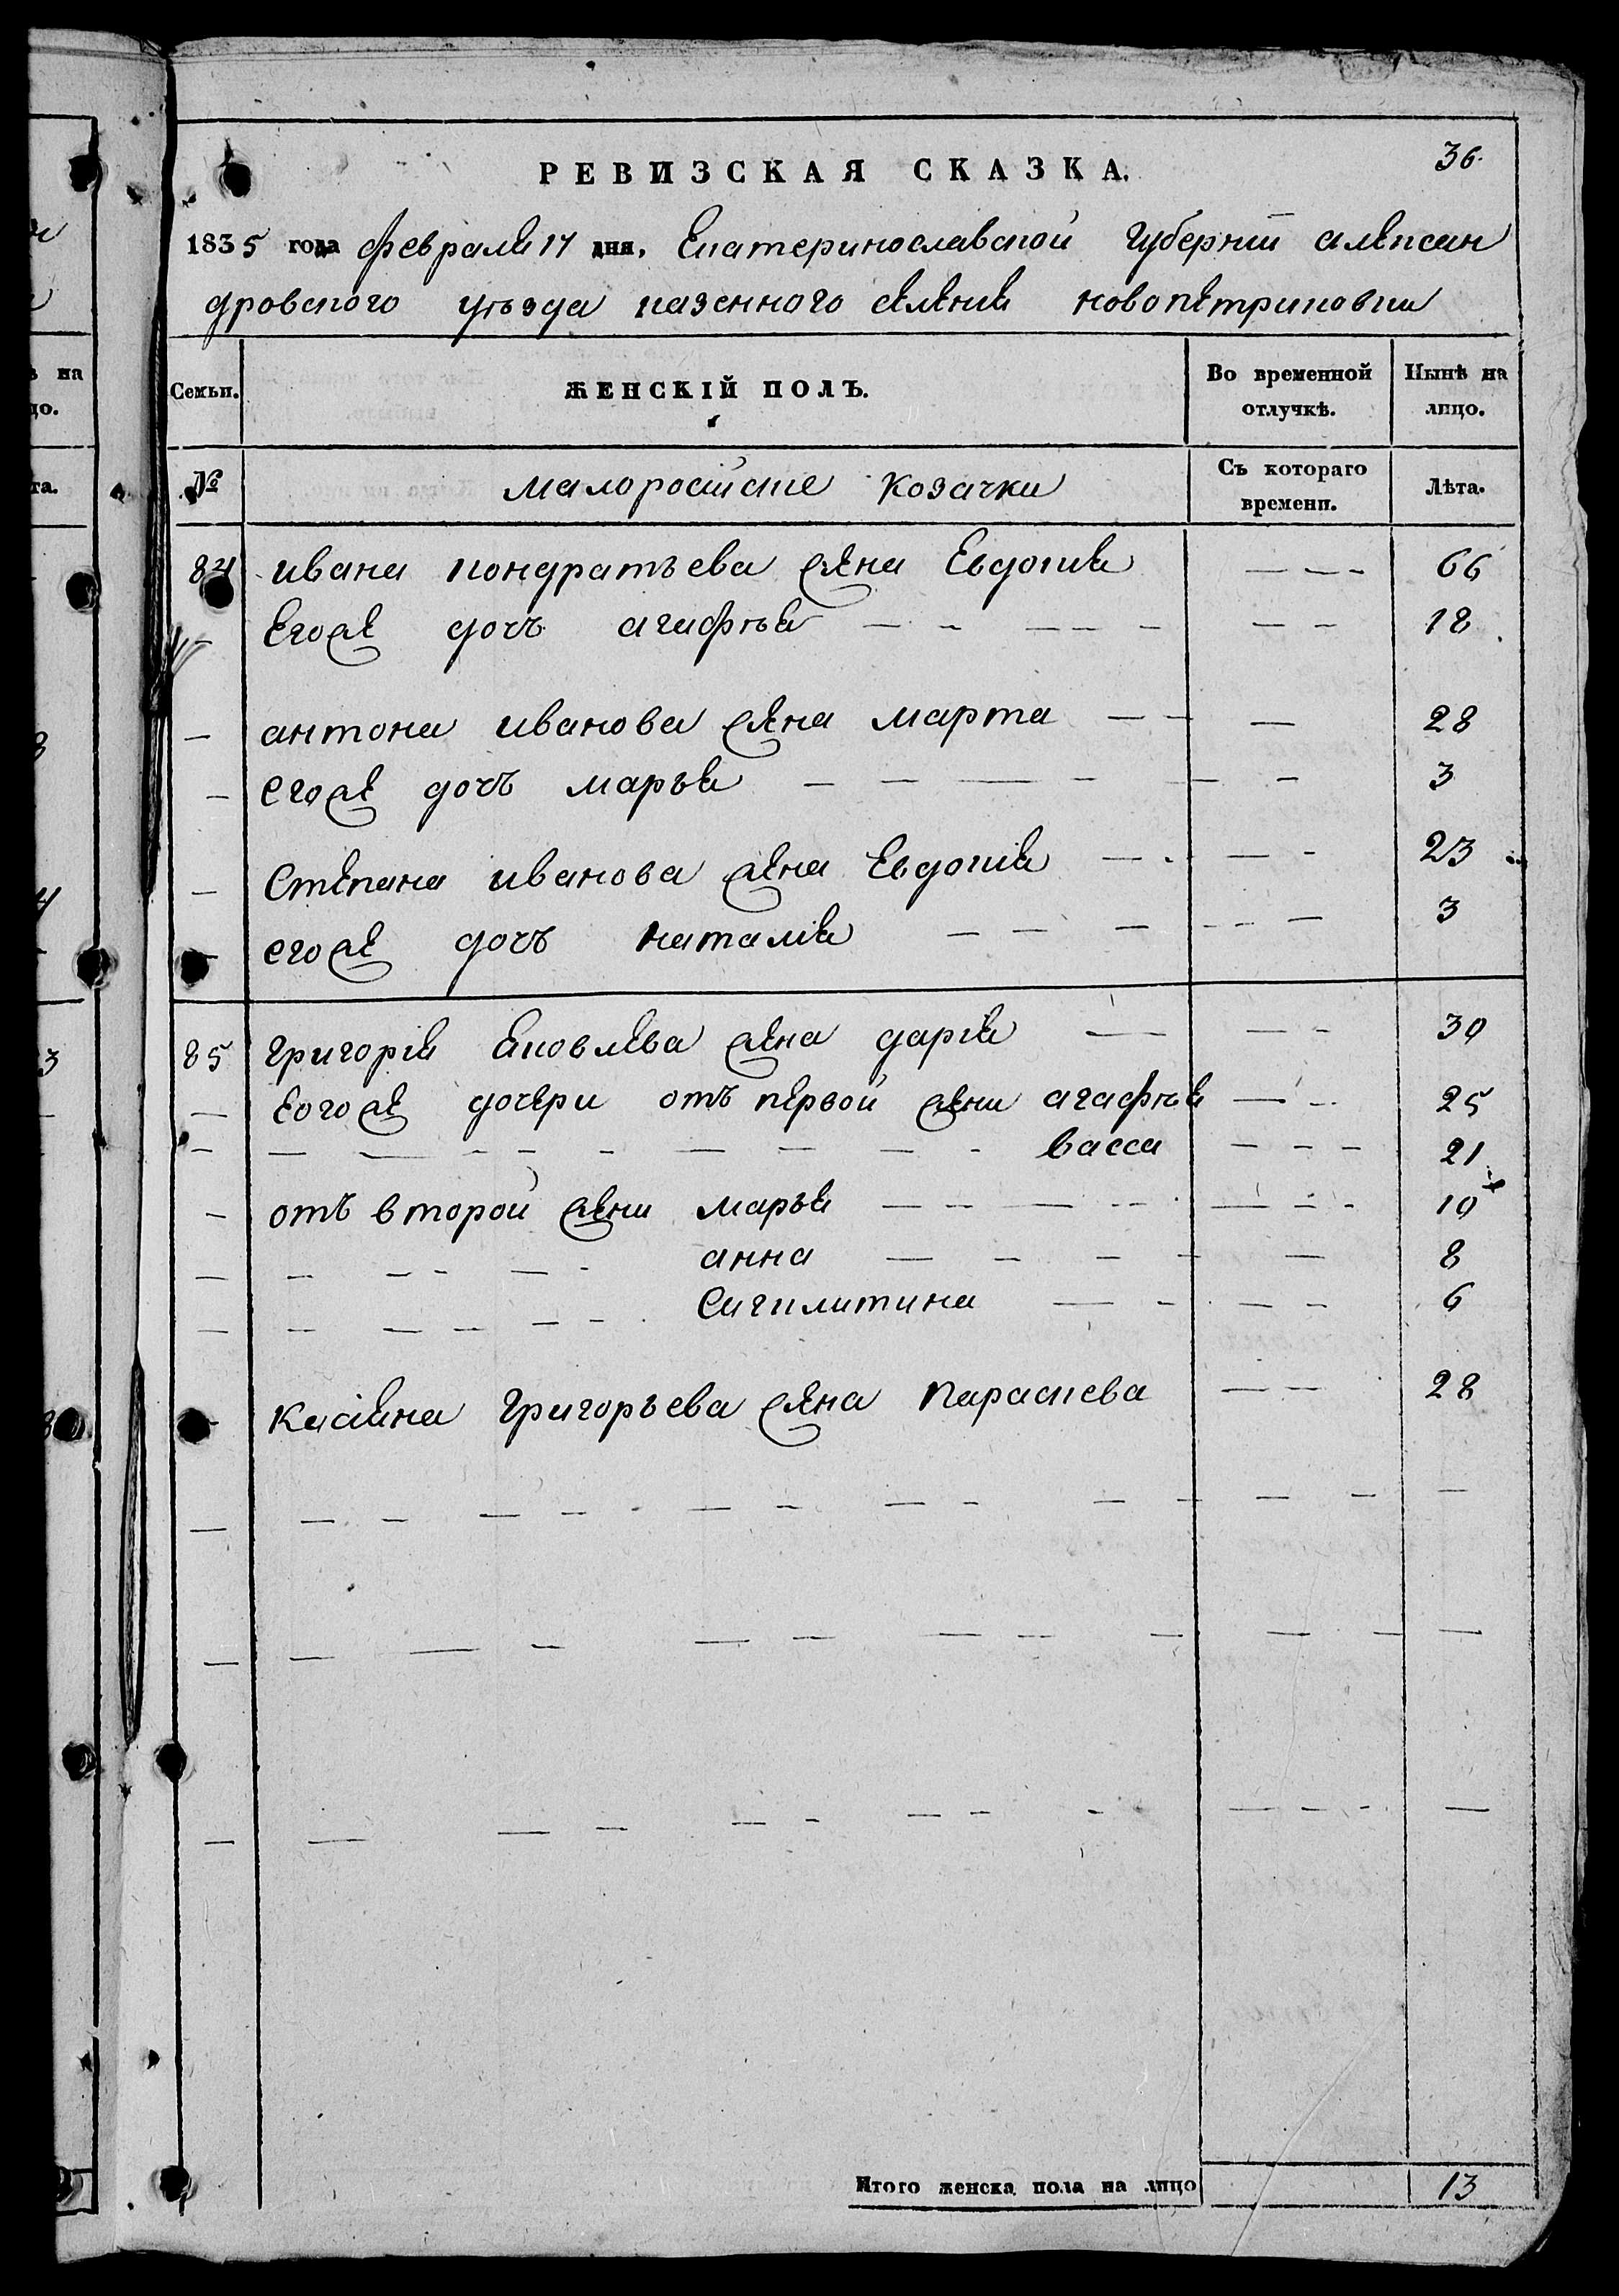 36.
РЕВИЗСКАЯ СКАЗКА.
1835 года февраля 17 дня, Екатеринославской Губерніи алексан
дровского уѣзда казенного селения новопетриковки
Семьи. ЖЕНСКІЙ ПОЛЪ. Во временной отлучкѣ. Нынѣ на лицо.
№ малоросійские козачки Съ котораго времени. Лѣта.
84 ивана кондратьева жена Евдокия — — - 66
- Егоже дочь агафья — - — — - — - 18
— антона иванова жена марта — — — 28
— егоже дочь марья — — — - — - 3
— Степана иванова жена Евдокия — - — - 23
- егоже дочь наталия — — — - - — 3
85 григорія яковлева жена дарія — — - 30
— Егоже дочери отъ первой жены агафья — - 25
- — — - - - — — — - васса - - - 21
- отъ второй жены марья — - - — - - — - - 10
— - — - — - анна — - - - — 8
— - — - — - Сигклитина — - — - 6
- касіяна григорьева жена параскева — — 28
Итого женска пола на лицо 13